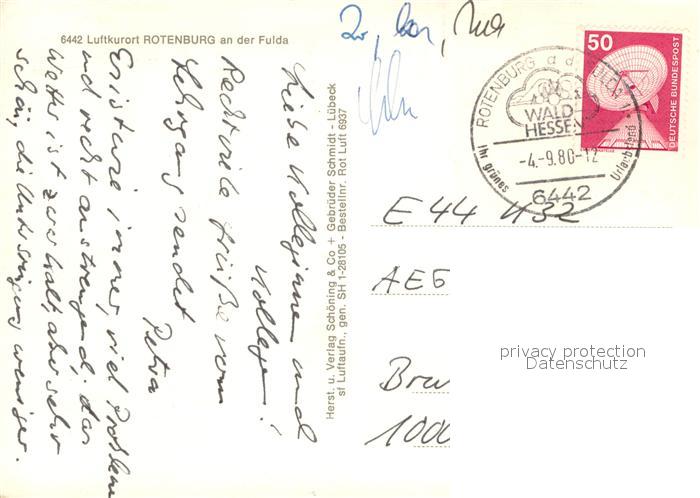 6442 Luftkurort ROTENBURG an der Fulda
Liebe Kolleginnen und
Kollegen!
Recht viele Grüße vom
Lehrgang sendet
Petra
Es ist wie immer, viel Problem
und recht anstrengend, das
Wetter ist zwar kalt, aber sehr
schön, die Unterbringung weniger.
Herst. u. Verlag Schöning & Co + Gebrüder Schmidt - Lübeck
sf Luftaufn., gen. SH 1-28105 - Bestellnr. Rot Luft 6937
ROTENBURG a d
WALD
HESSEN
-4.-9.80-12
Ihr grünes Urlaubsland
6442
50
DEUTSCHE BUNDESPOST
E 44 432
AEG
privacy protection
Datenschutz
1000